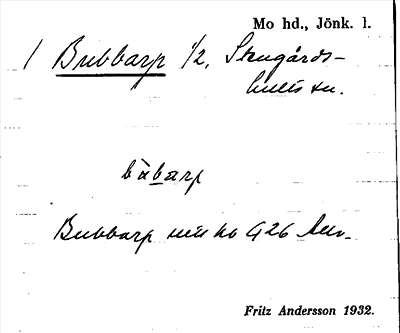 Mo hd., Jönk. l.
1 Bubbarp 1/2, Stengårds-
hults sn.
bàbarp
Bubbarp 426 har
Fritz Andersson 1932.